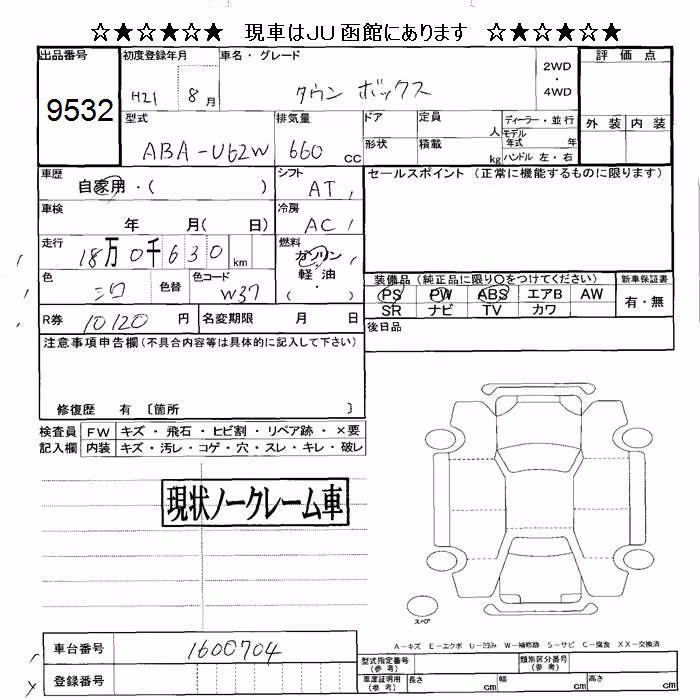 ☆★☆★☆★ 現車はJU函館にあります ☆★☆★☆★
出品番号 初度登録年月 車名・グレード 2WD・4WD 評価点
9532 H21 8月 タウンボックス
型式 排気量 ドア 定員 人 ディーラー・並行 外装 内装
ABA-U62W 660cc 形状 積載 kg モデル年式 年
ハンドル 左・右
車歴 自家用・( ) シフト AT セールスポイント(正常に機能するものに限ります)
車検 年 月( 日) 冷房 AC
走行 18万0千630km 燃料 ガソリン
軽・油
( ・ )
色 シロ 色替 色コード W37
装備品(純正品に限り○をつけてください) 新車保証書
PS PW ABS エアB AW 有・無
SR ナビ TV カワ
R券 10120円 名変期限 月 日 後日品
注意事項申告欄(不具合内容等は具体的に記入して下さい)
修復歴 有 〔箇所 〕
検査員 FW キズ・飛石・ヒビ割・リペア跡・×要
記入欄 内装 キズ・汚レ・コゲ・穴・スレ・キレ・破レ
現状ノークレーム車
スペア
A-キズ E-エクボ U-凹み W-補修跡 S-サビ C-腐食 XX-交換済
車台番号 1600704
登録番号
型式指定番号(参考) 類別区分番号(参考)
車庫証明用(参考) 長さ cm 幅 cm 高さ cm